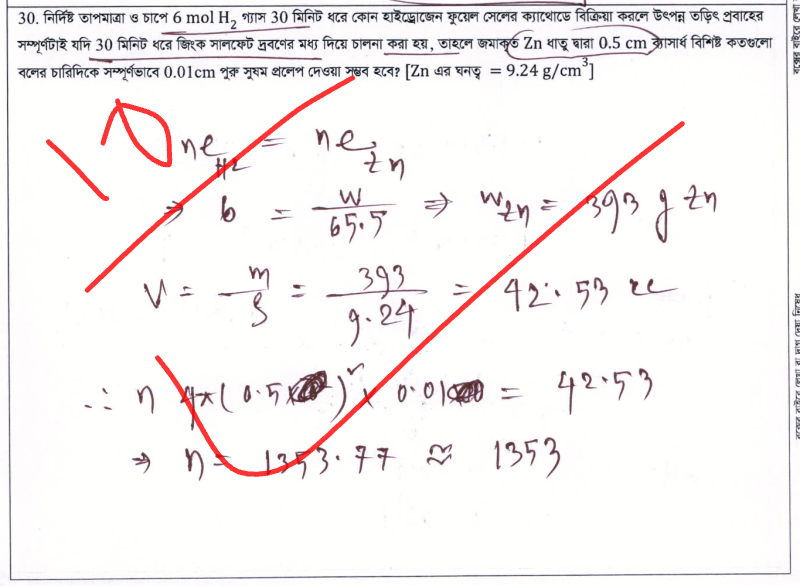 30. নির্দিষ্ট তাপমাত্রা ও চাপে 6 mol H₂ গ্যাস 30 মিনিট ধরে কোন হাইড্রোজেন ফুয়েল সেলের ক্যাথোডে বিক্রিয়া করলে উৎপন্ন তড়িৎ প্রবাহের
সম্পূর্ণটাই যদি 30 মিনিট ধরে জিংক সালফেট দ্রবণের মধ্য দিয়ে চালনা করা হয়, তাহলে জমাকৃত Zn ধাতু দ্বারা 0.5 cm ব্যাসার্ধ বিশিষ্ট কতগুলো
বলের চারিদিকে সম্পূর্ণভাবে 0.01cm পুরু সুষম প্রলেপ দেওয়া সম্ভব হবে? [Zn এর ঘনত্ব = 9.24 g/cm³]
10
ne H2 = ne Zn
⇒ 6 = W/65.5 ⇒ W Zn = 393 g Zn
V = m/ρ = 393/9.24 = 42.53 cc
∴ n 4π(0.5)² × 0.01 = 42.53
⇒ n = 1353.77 ≅ 1353